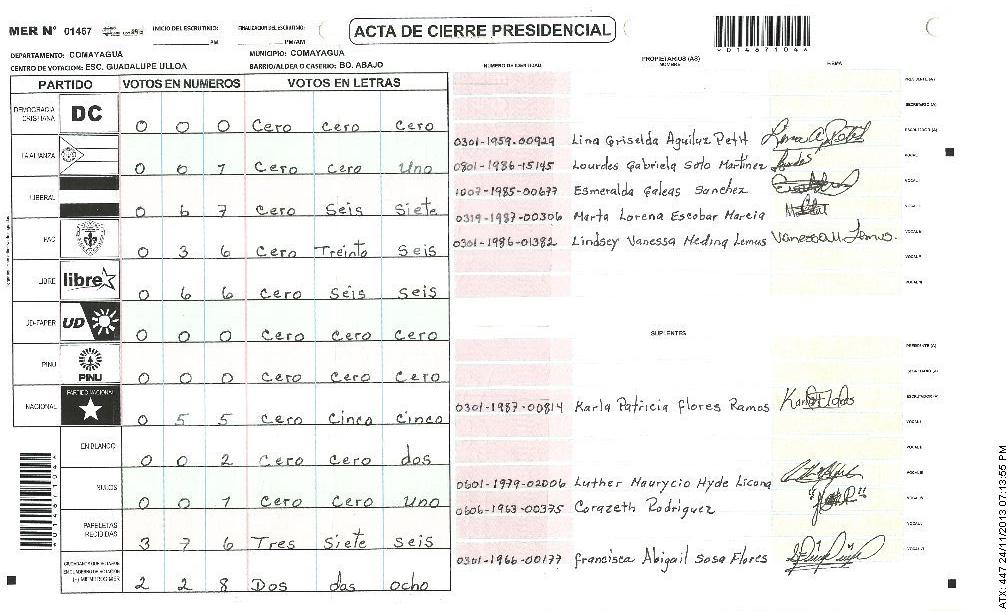 MER Nº 01467 INICIO DEL ESCRUTINIO: FINALIZACION DEL ESCRUTINIO:
PM PM/AM
ACTA DE CIERRE PRESIDENCIAL
DEPARTAMENTO: COMAYAGUA MUNICIPIO: COMAYAGUA
CENTRO DE VOTACION: ESC. GUADALUPE ULLOA BARRIO/ALDEA O CASERIO: BO. ABAJO
PARTIDO VOTOS EN NUMEROS VOTOS EN LETRAS
DEMOCRACIA CRISTIANA DC 0 0 0 Cero cero Cero
LA ALIANZA 0 0 1 Cero Cero Uno
LIBERAL 0 6 7 Cero Seis Siete
PAC 0 3 6 Cero Treinta Seis
LIBRE libre 0 6 6 Cero Seis Seis
UD-FAPER UD 0 0 0 Cero Cero Cero
PINU PINU 0 0 0 Cero Cero Cero
NACIONAL PARTIDO NACIONAL 0 5 5 Cero Cinco Cinco
EN BLANCO 0 0 2 Cero Cero dos
NULOS 0 0 1 Cero Cero Uno
PAPELETAS RECIBIDAS 3 7 6 Tres Siete seis
2 2 8 Dos dos ocho
NUMERO DE IDENTIDAD PROPIETARIOS (AS) NOMBRE FIRMA
PRESIDENTE (A)
SECRETARIO (A)
0301-1959-00929 Lina Griselda Aguiluz Petit ESCRUTADOR (A)
0801-1986-15145 Lourdes Gabriela Soto Martinez VOCAL I
1007-1985-00677 Esmeralda Galeas Sanchez
0319-1987-00306 Marta Lorena Escobar Marcia
0301-1986-01382 Lindsey Vanessa Medina Lemus Vanessa M Lemus.
SUPLENTES
PRESIDENTE (A)
SECRETARIO (A)
0301-1987-00814 Karla Patricia flores Ramos ESCRUTADOR (A)
0601-1979-02006 Luther Maurycio Hyde Licona
0606-1963-00375 Corazeth Rodriguez
0301-1966-00177 francisca Abigail Sosa Flores
ATX: 447 24/11/2013 07:13:55 PM